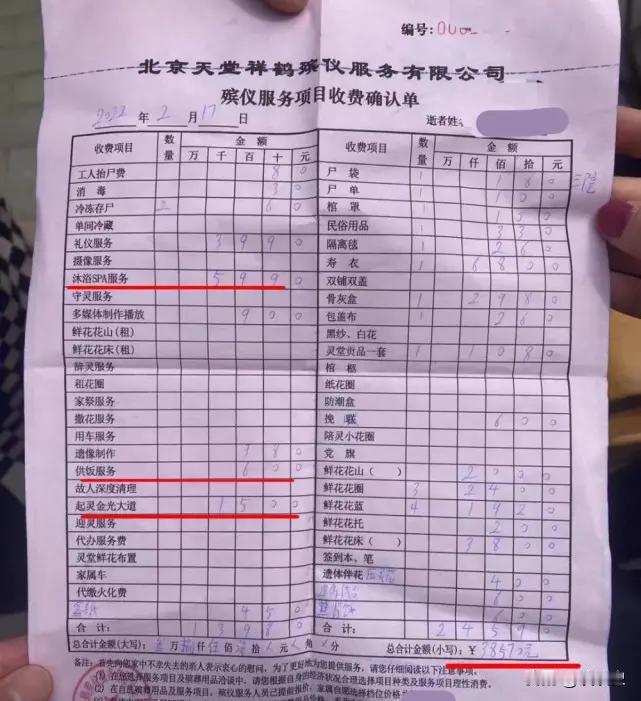 编号:
北京天堂祥鹤殡仪服务有限公司
殡仪服务项目收费确认单
2022 年 2 月 17 日 逝者姓
收费项目 数量 金额 万 千 百 十 元 收费项目 数量 金额 万 仟 佰 拾 元
工人抬尸费 8 0 尸袋 1 1 8 0
消毒 3 0 尸单 1 1 0 0
冷冻存尸 2 6 0 棺罩 1
单间冷藏 民俗用品 1 3 3 0
礼仪服务 3 9 9 0 隔离毯 1 2 6 0
摄像服务 寿衣 1 6 8 0 0
沐浴SPA服务 5 9 9 0 双铺双盖
守灵服务 骨灰盒 1 2 9 8 0
多媒体制作播放 9 0 0 包盖布 1 2 6 0
鲜花花山(租) 黑纱、白花
鲜花花床(租) 灵堂贡品一套 1 1 0 8 0
辞灵服务 棺柩
租花圈 纸花圈
家祭服务 防潮盒
撒花服务 挽联 6 0 0
用车服务 陪灵小花圈
遗像制作 3 8 0 党旗
供饭服务 6 0 0 鲜花花山( ) 2 0 0 0
故人深度清理 鲜花花圈 3 2 4 0 0
起灵金光大道 1 5 0 0 鲜花花蓝 4 1 9 2 0
迎灵服务 鲜花花托 2 0 0
代办服务费 鲜花花床( ) 3 8 0 0
灵堂鲜花布置 签到本、笔
家属车 遗体伴花 4 0 0
代缴火化费 6 0 0
4 5 0
合计: 1 3 9 8 0 合计: 2 4 5 9 0
总合计金额(大写): 万 仟 佰 拾 元 角 分 总合计金额(小写):¥38570元
备注:首先向您家中不幸失去的亲人表示衷心的慰问,为了更好地为您提供服务,请您仔细阅读以下注意事项。
(1)在您选择服务项目及殡葬用品洽谈中,请您根据自身的经济状况合理选择项目种类及服务项目理性消费。